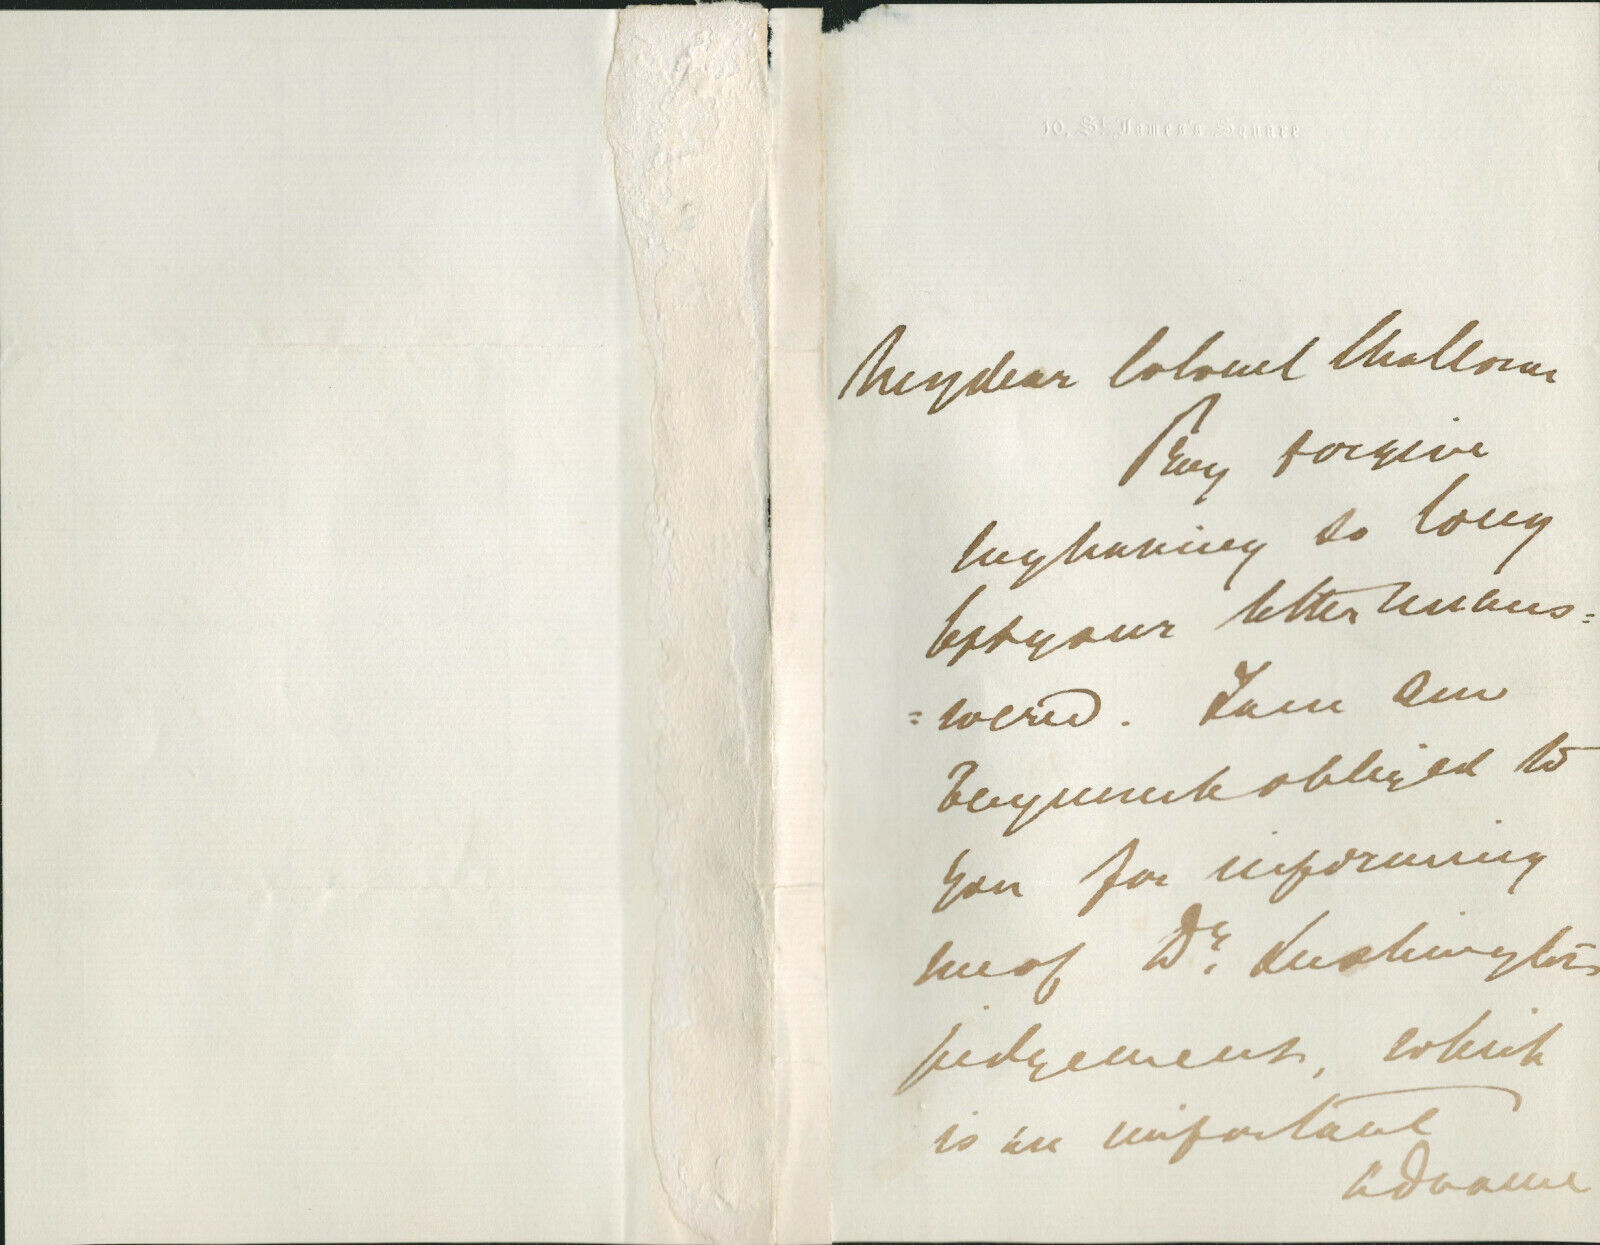 10, St. James's Square
My dear Colonel Challoner
Pray forgive
my having so long
left your letter unans=
=wered. I am am
very much obliged to
you for informing
me of Dr. Lushington's
judgement, which
is an important
advance